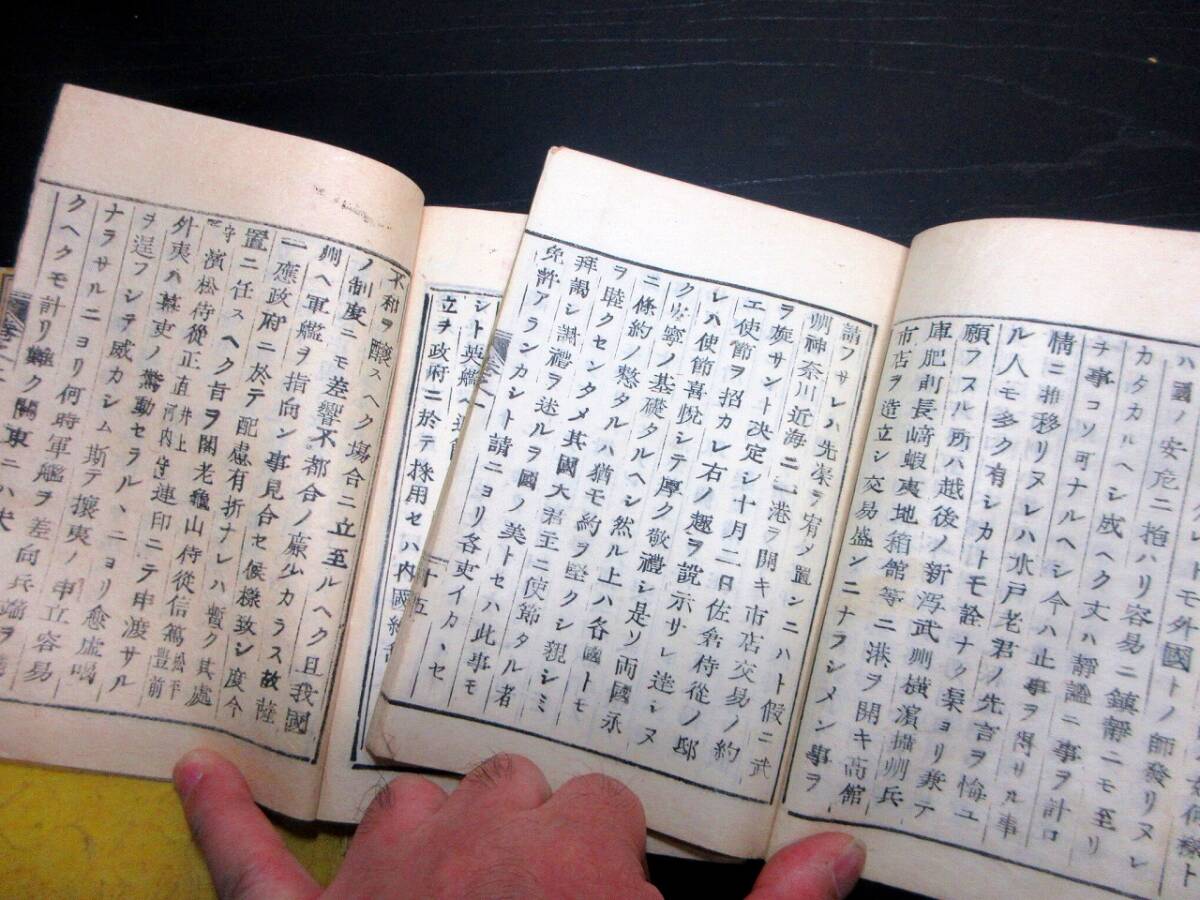 ハ國ノ安危ニ抱ハリ容易ニ鎮靜ニモ至リ
カタカルヘシ成ヘク丈ハ靜謐ニ事ヲ計ロ
チ事コソ可ナルヘシ今ハ止事ヲ得サル事
情ニ推移リヌレハ水戸老君ノ先言ヲ悔ユ
ル人モ多ク有シカトモ詮ナク
願フスル所ハ越後ノ新泻武州横濱攝州兵
庫肥前長﨑蝦夷地箱館等ニ港ヲ開キ商館
市店ヲ造立シ交易盛ンニナラシメン事ヲ
請フサレハ先渠ヲ宥メ置ンニハト假ニ武
州神奈川近海ニ一港ヲ開キ市店交易ノ約
ヲ旋サント决定シ十月二日佐倉侍從ノ邸
エ使節ヲ招カレ右ノ趣ヲ説示サレ達シヌ
レハ使節喜悦シテ厚ク敬禮シ是ソ両國永
ク安寧ノ基礎タルヘシ然ル上ハ各國トモ
ニ條約ノ整タルハ猶モ約ヲ堅クシ親シミ
ヲ睦クセンタメ其國大君主ニ使節タル者
拜謁シ謝禮ヲ述ルヲ國ノ美トセハ此事モ
免許アランカシト請ニヨリ各吏イカヽセ
十五
シト英艦ヘ
立ヲ政府ニ於テ採用セハ内國
不和ヲ醸スヘク場合ニ立至ルヘク且我國
ノ制度ニモ差響不都合ノ廉少カラス故薩
州ヘ軍艦ヲ指向ン事見合セ候様致シ度今
一應政府ニ於テ配慮有折ナレハ暫ク其處
置ニ任スヘク旨ヲ閣老龜山侍從信篤松平豊前
守濱松侍從正直井上河内守連印ニテ申渡サル
外夷ハ幕吏ノ驚動セラルヽニヨリ愈虚喝
ヲ逞フシテ威カシム斯テ攘夷ノ申立容易
ナラサルニヨリ何時軍艦ヲ差向兵端ヲ
クヘクモ計リ難ク關東ニハ